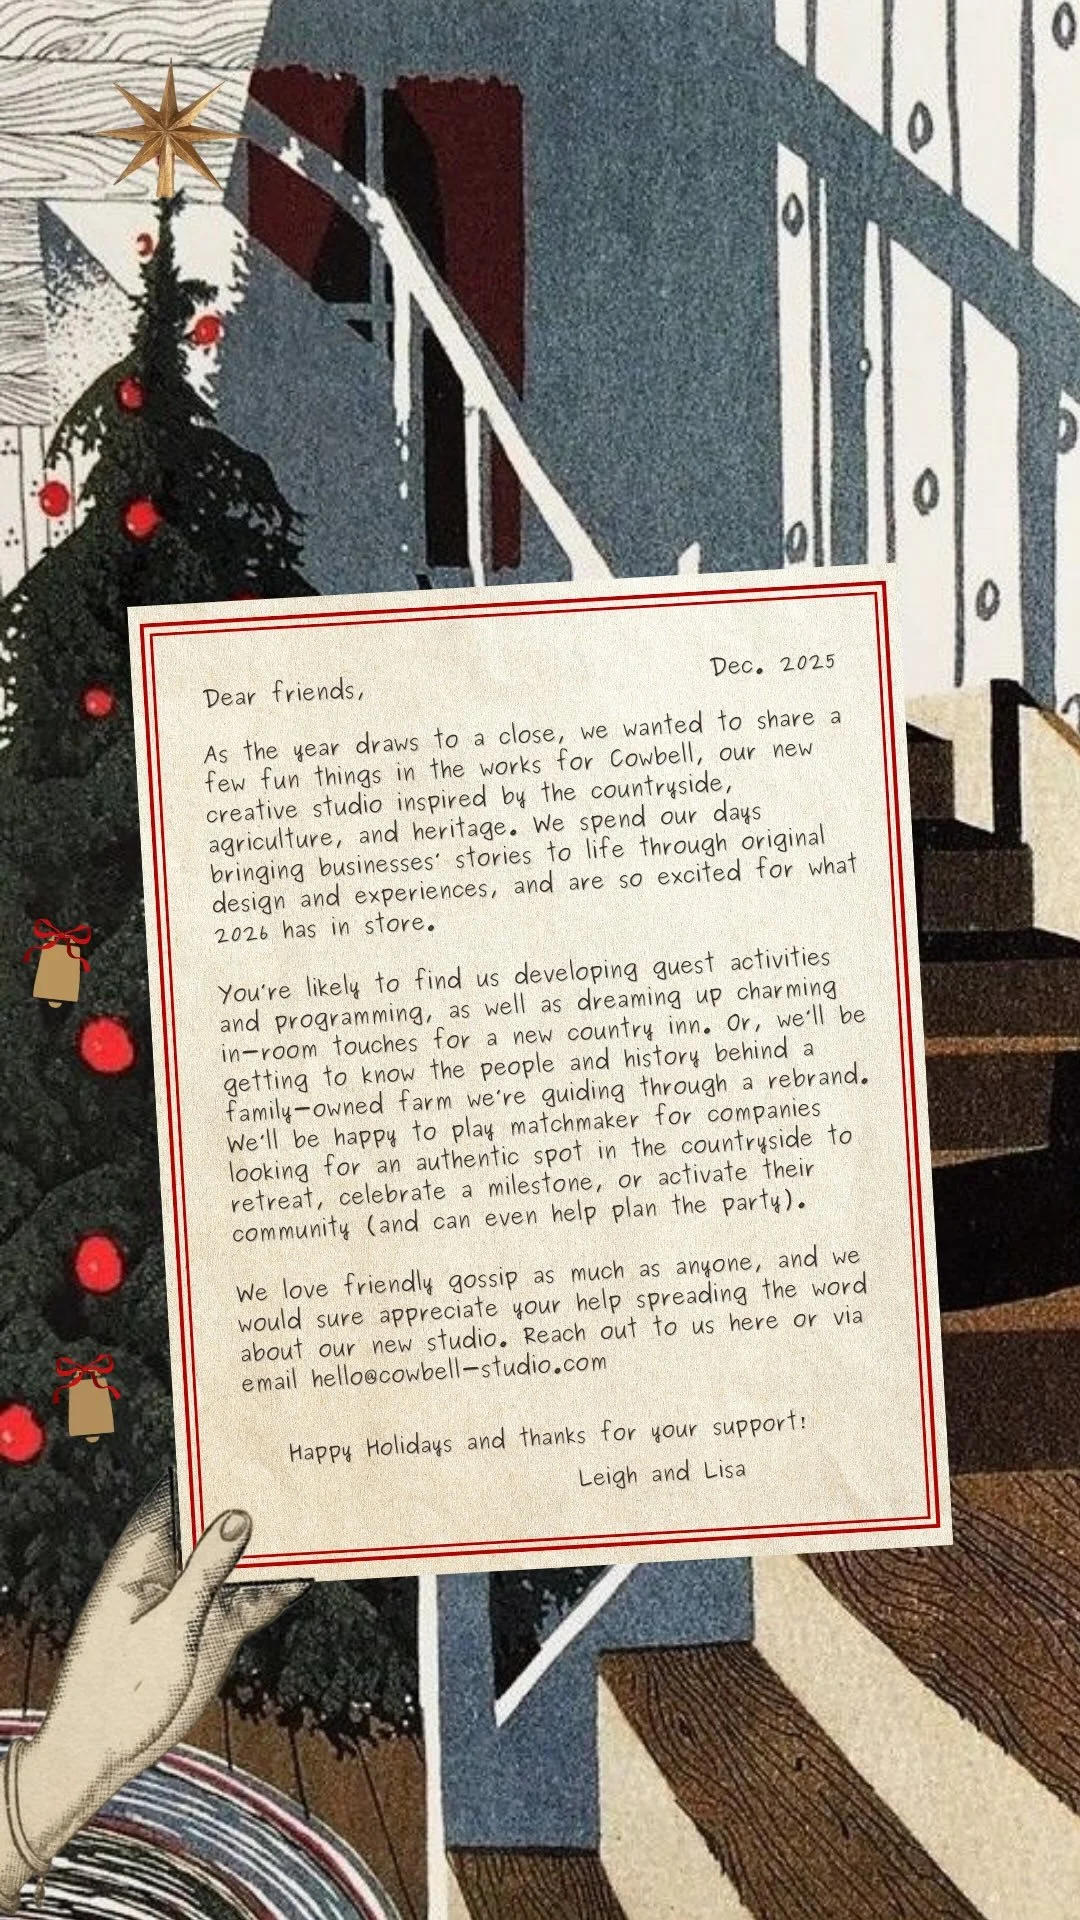 Dec. 2025
Dear friends,
As the year draws to a close, we wanted to share a
few fun things in the works for Cowbell, our new
creative studio inspired by the countryside,
agriculture, and heritage. We spend our days
bringing businesses' stories to life through original
design and experiences, and are so excited for what
2026 has in store.
You're likely to find us developing guest activities
and programming, as well as dreaming up charming
in-room touches for a new country inn. Or, we'll be
getting to know the people and history behind a
family-owned farm we're guiding through a rebrand.
We'll be happy to play matchmaker for companies
looking for an authentic spot in the countryside to
retreat, celebrate a milestone, or activate their
community (and can even help plan the party).
We love friendly gossip as much as anyone, and we
would sure appreciate your help spreading the word
about our new studio. Reach out to us here or via
email hello@cowbell-studio.com
Happy Holidays and thanks for your support!
Leigh and Lisa